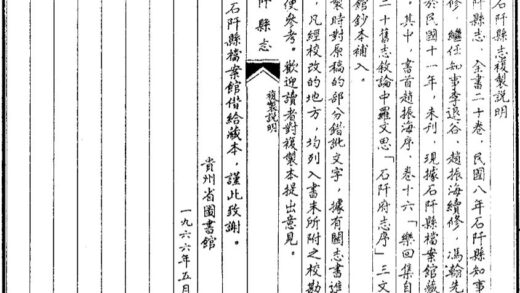 石阡縣志複製説明
石阡縣志、全書二十卷，民國八年石阡縣知事
修，繼任知事李退谷、趙振海續修，馮翰先
於民國十一年，未刊，現據石阡縣檔案館藏
。其中，書首趙振海序，卷十六「樂回集自
二十舊志敘論中羅文思「石阡府志序」三文
館鈔本補入。
製時對原稿的部分錯訛文字，據有關志書進
，凡經校改的地方，均列入書末所附之校勘
便參考。歡迎讀者對複製本提出意見。
阡縣志
複製説明
石阡縣檔案館借給藏本，謹此致謝。
貴州省圖書館
一九六六年五月